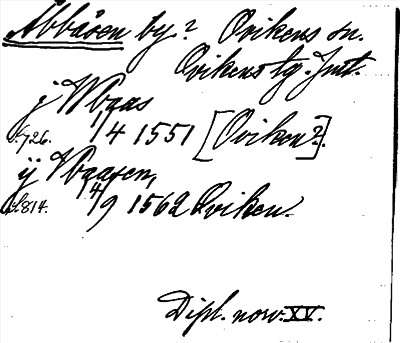 Åbbåsen by? Ovikens sn.
Ovikens tg. Jmt.
j Wbaas
s.726. 1/4 1551 [Oviken?].
ÿ Vbaasen,
s.814. 14/9 1562 Oviken.
Dipl. norv. XV.